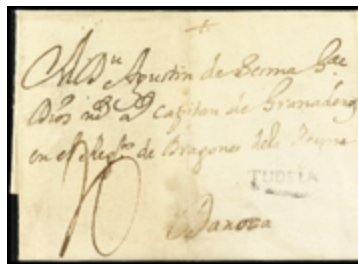 A Dn Agustin de Serma Gde
Dios ms as Capitan de Granaderos
en el Regto de Dragones dela Reyna
TUDELA
Daroca